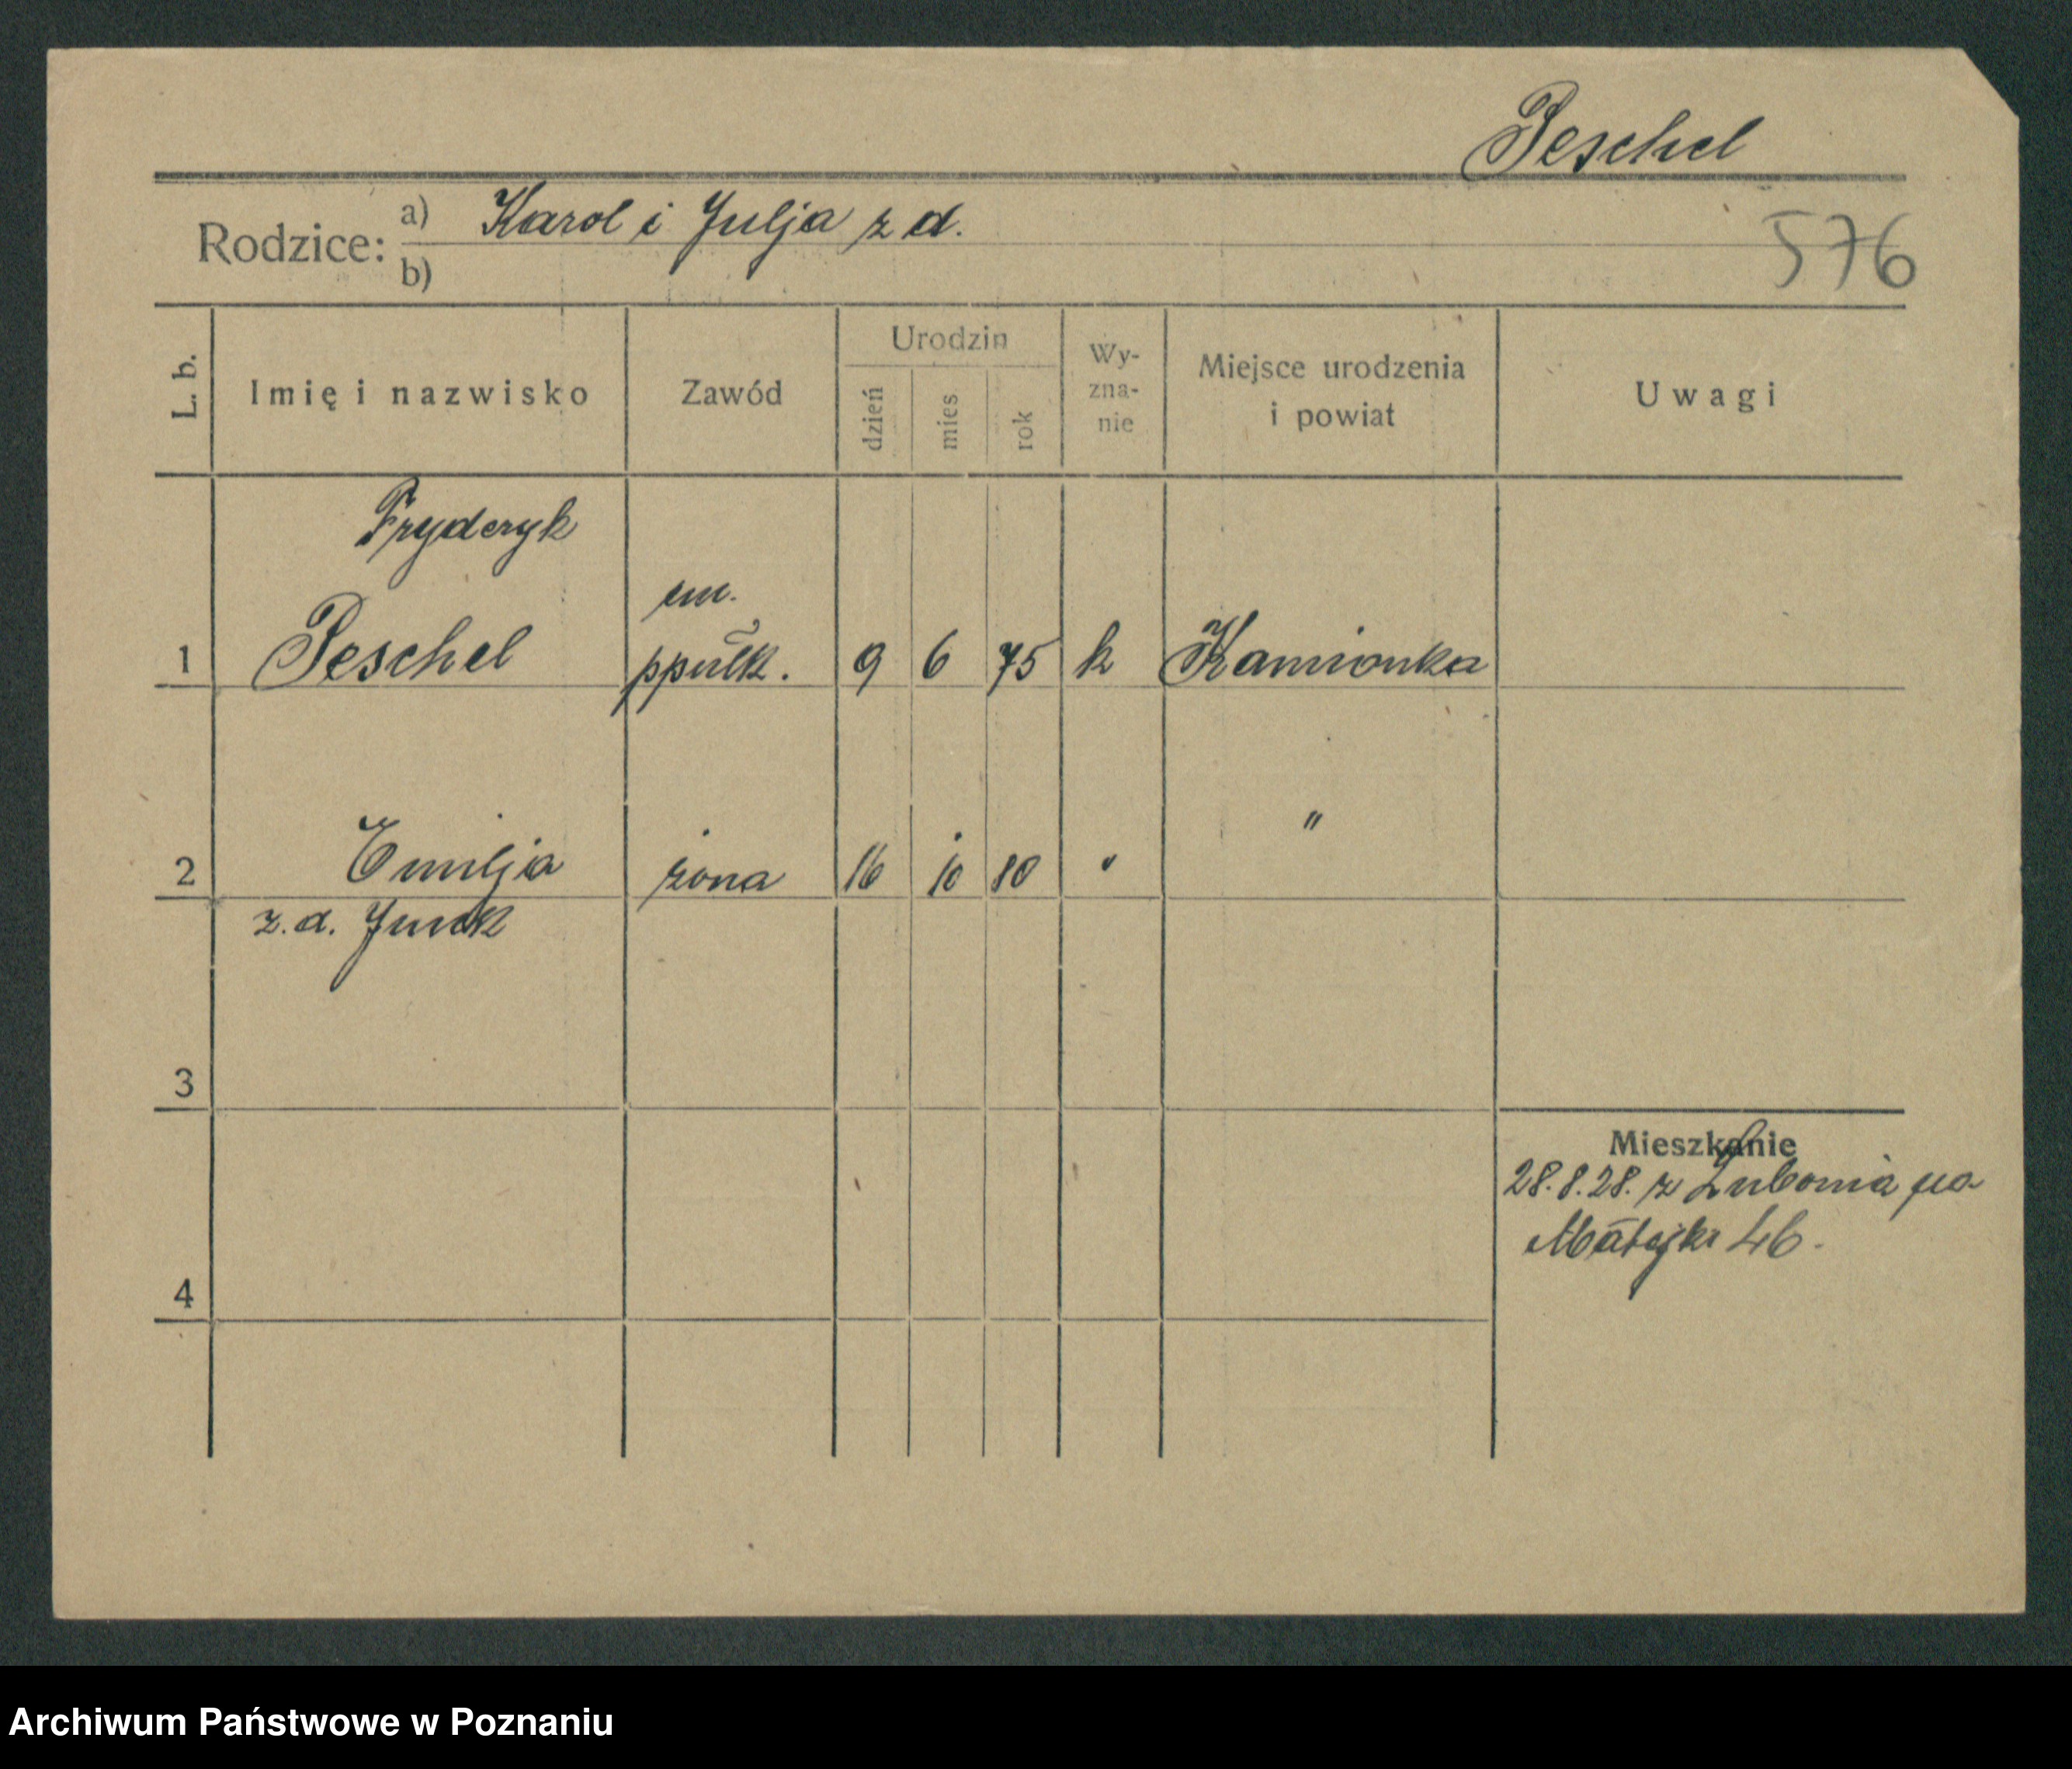 Peschel
Rodzice: a) Karol i Julja z d.
b)
576
L. b. Imię i nazwisko Zawód Urodzin dzień mies rok Wy-zna-nie Miejsce urodzenia i powiat Uwagi
Fryderyk
em.
1 Peschel ppułk. 9 6 75 k Kamionka
2 Emilja żona 16 10 80 " "
z. d.
3
Mieszkanie
28.8.28. z Lubonia na
Matejki 46.
4
Archiwum Państwowe w Poznaniu